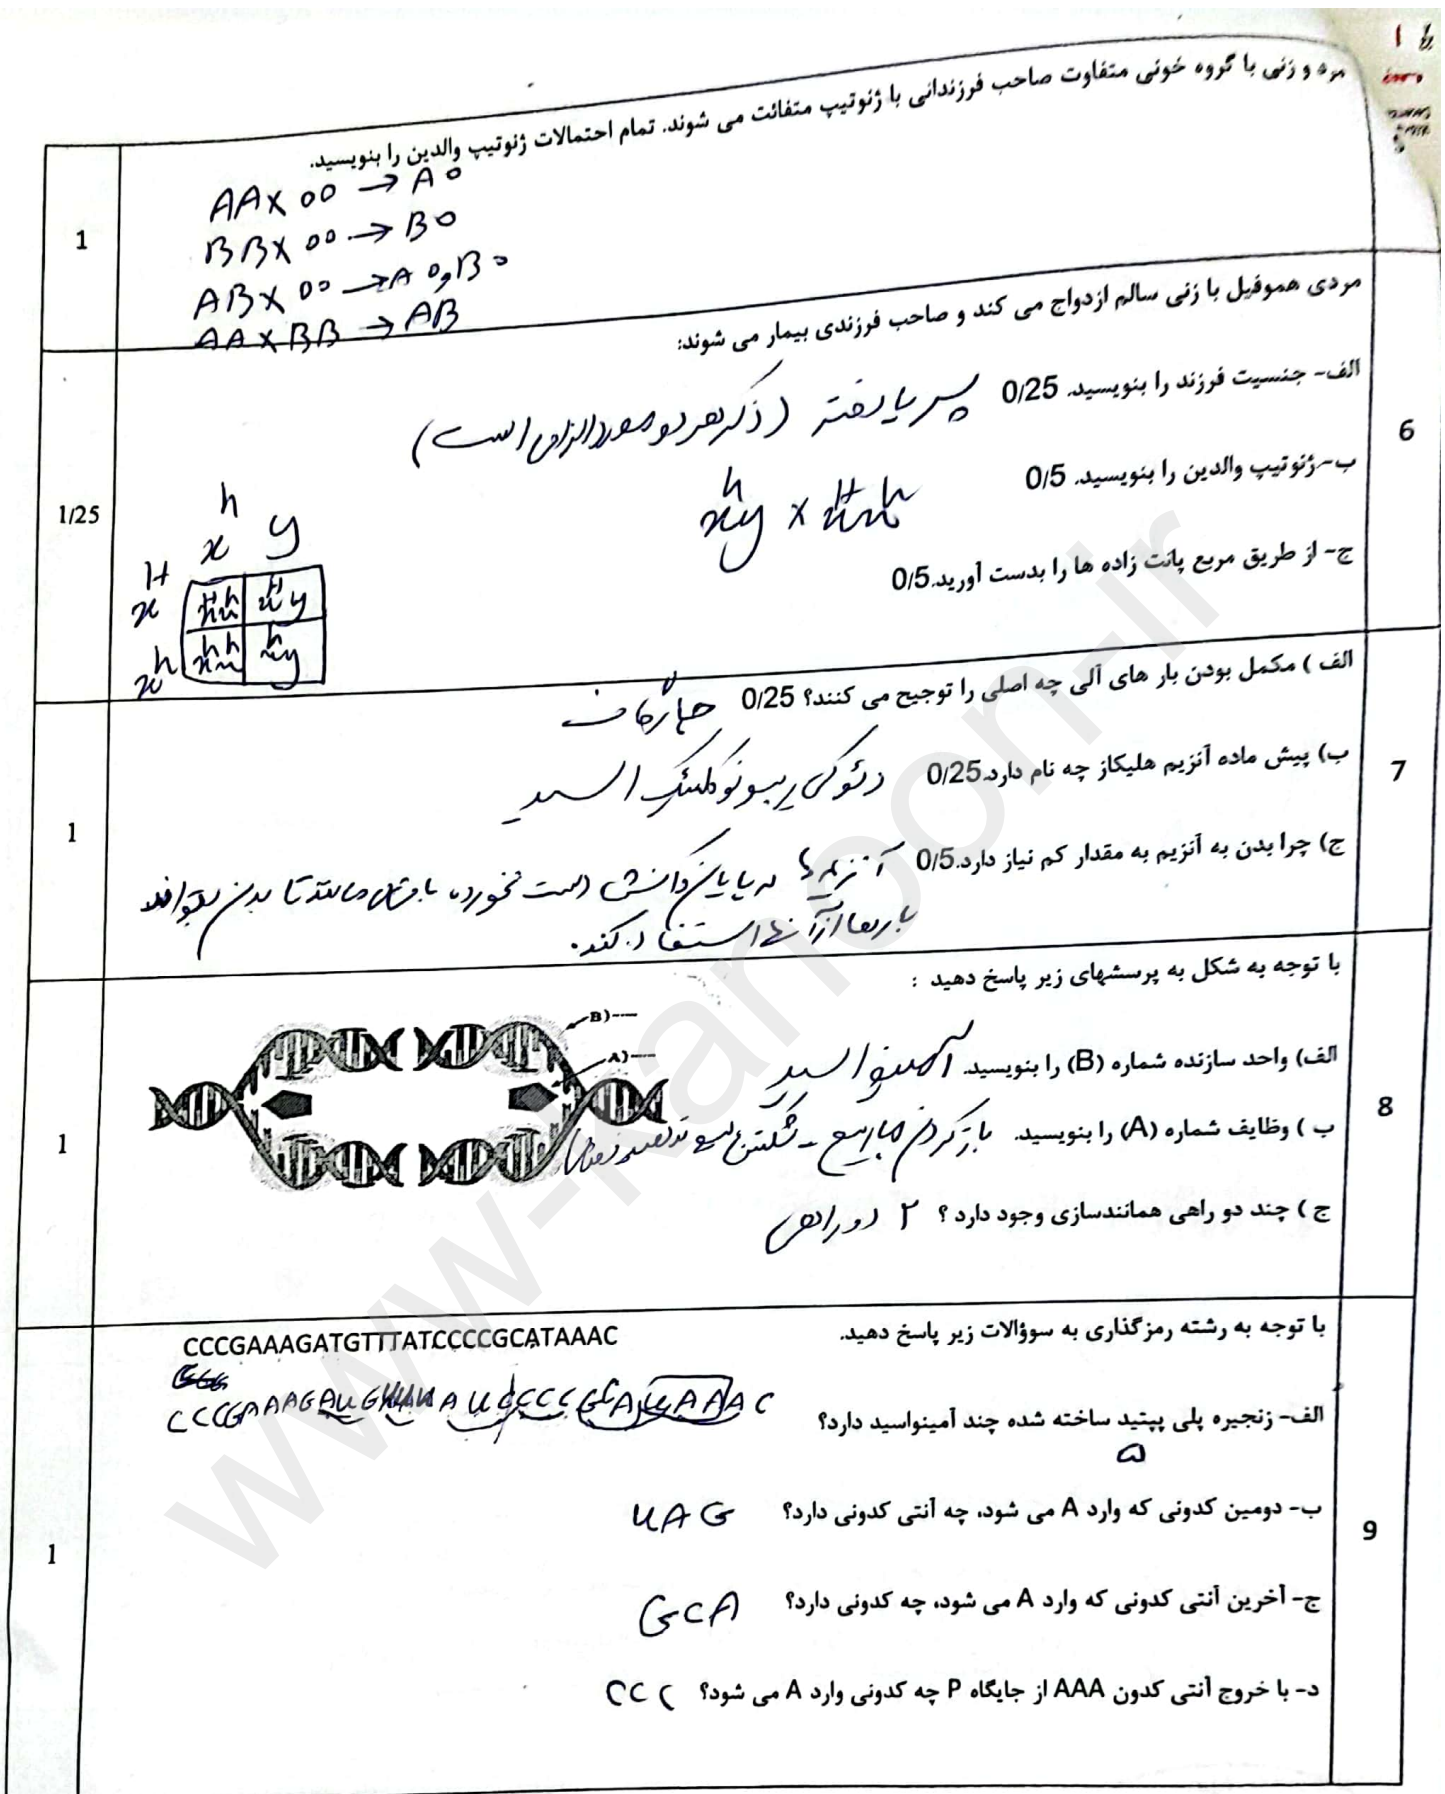 مرد و زنی با گروه خونی متفاوت صاحب فرزندانی با ژنوتیپ متفائت می شوند. تمام احتمالات ژنوتیپ والدین را بنویسید.
1
AA x oo → Ao
BB x oo → Bo
AB x oo → Ao و Bo
AA x BB → AB
6
مردی هموفیل با زنی سالم ازدواج می کند و صاحب فرزندی بیمار می شوند:
الف- جنسیت فرزند را بنویسید. 0/25 پسر یا دختر (ذکر هر دو مورد الزامی است)
ب- ژنوتیپ والدین را بنویسید. 0/5
ج- از طریق مربع پانت زاده ها را بدست آورید.0/5
1/25
h
x y
H
x
7
الف ) مکمل بودن باز های آلی چه اصلی را توجیح می کنند؟ 0/25
ب) پیش ماده آنزیم هلیکاز چه نام دارد.0/25 دئوکسی ریبونوکلئیک اسید
ج) چرا بدن به آنزیم به مقدار کم نیاز دارد.0/5 آنزیم ها در پایان واکنش دست نخورده باقی می مانند تا بدن بتواند
بارها از آنها استفاده کند.
1
8
با توجه به شکل به پرسشهای زیر پاسخ دهید :
B)----
A)----
الف) واحد سازنده شماره (B) را بنویسید. آمینو اسید
ب ) وظایف شماره (A) را بنویسید. باز کردن مارپیچ - شکستن
ج ) چند دو راهی همانندسازی وجود دارد ؟ ۲ دوراهی
1
9
با توجه به رشته رمزگذاری به سوؤالات زیر پاسخ دهید.
CCCGAAAGATGTTTATCCCCGCATAAAC
CCCGAAAGAUGUUUAUCCCCGCAUAAAC
الف- زنجیره پلی پپتید ساخته شده چند آمینواسید دارد؟
۵
ب- دومین کدونی که وارد A می شود، چه آنتی کدونی دارد؟ UAG
ج- آخرین آنتی کدونی که وارد A می شود، چه کدونی دارد؟ GCA
د- با خروج آنتی کدون AAA از جایگاه P چه کدونی وارد A می شود؟ CCC
1
www-kanoon-ir